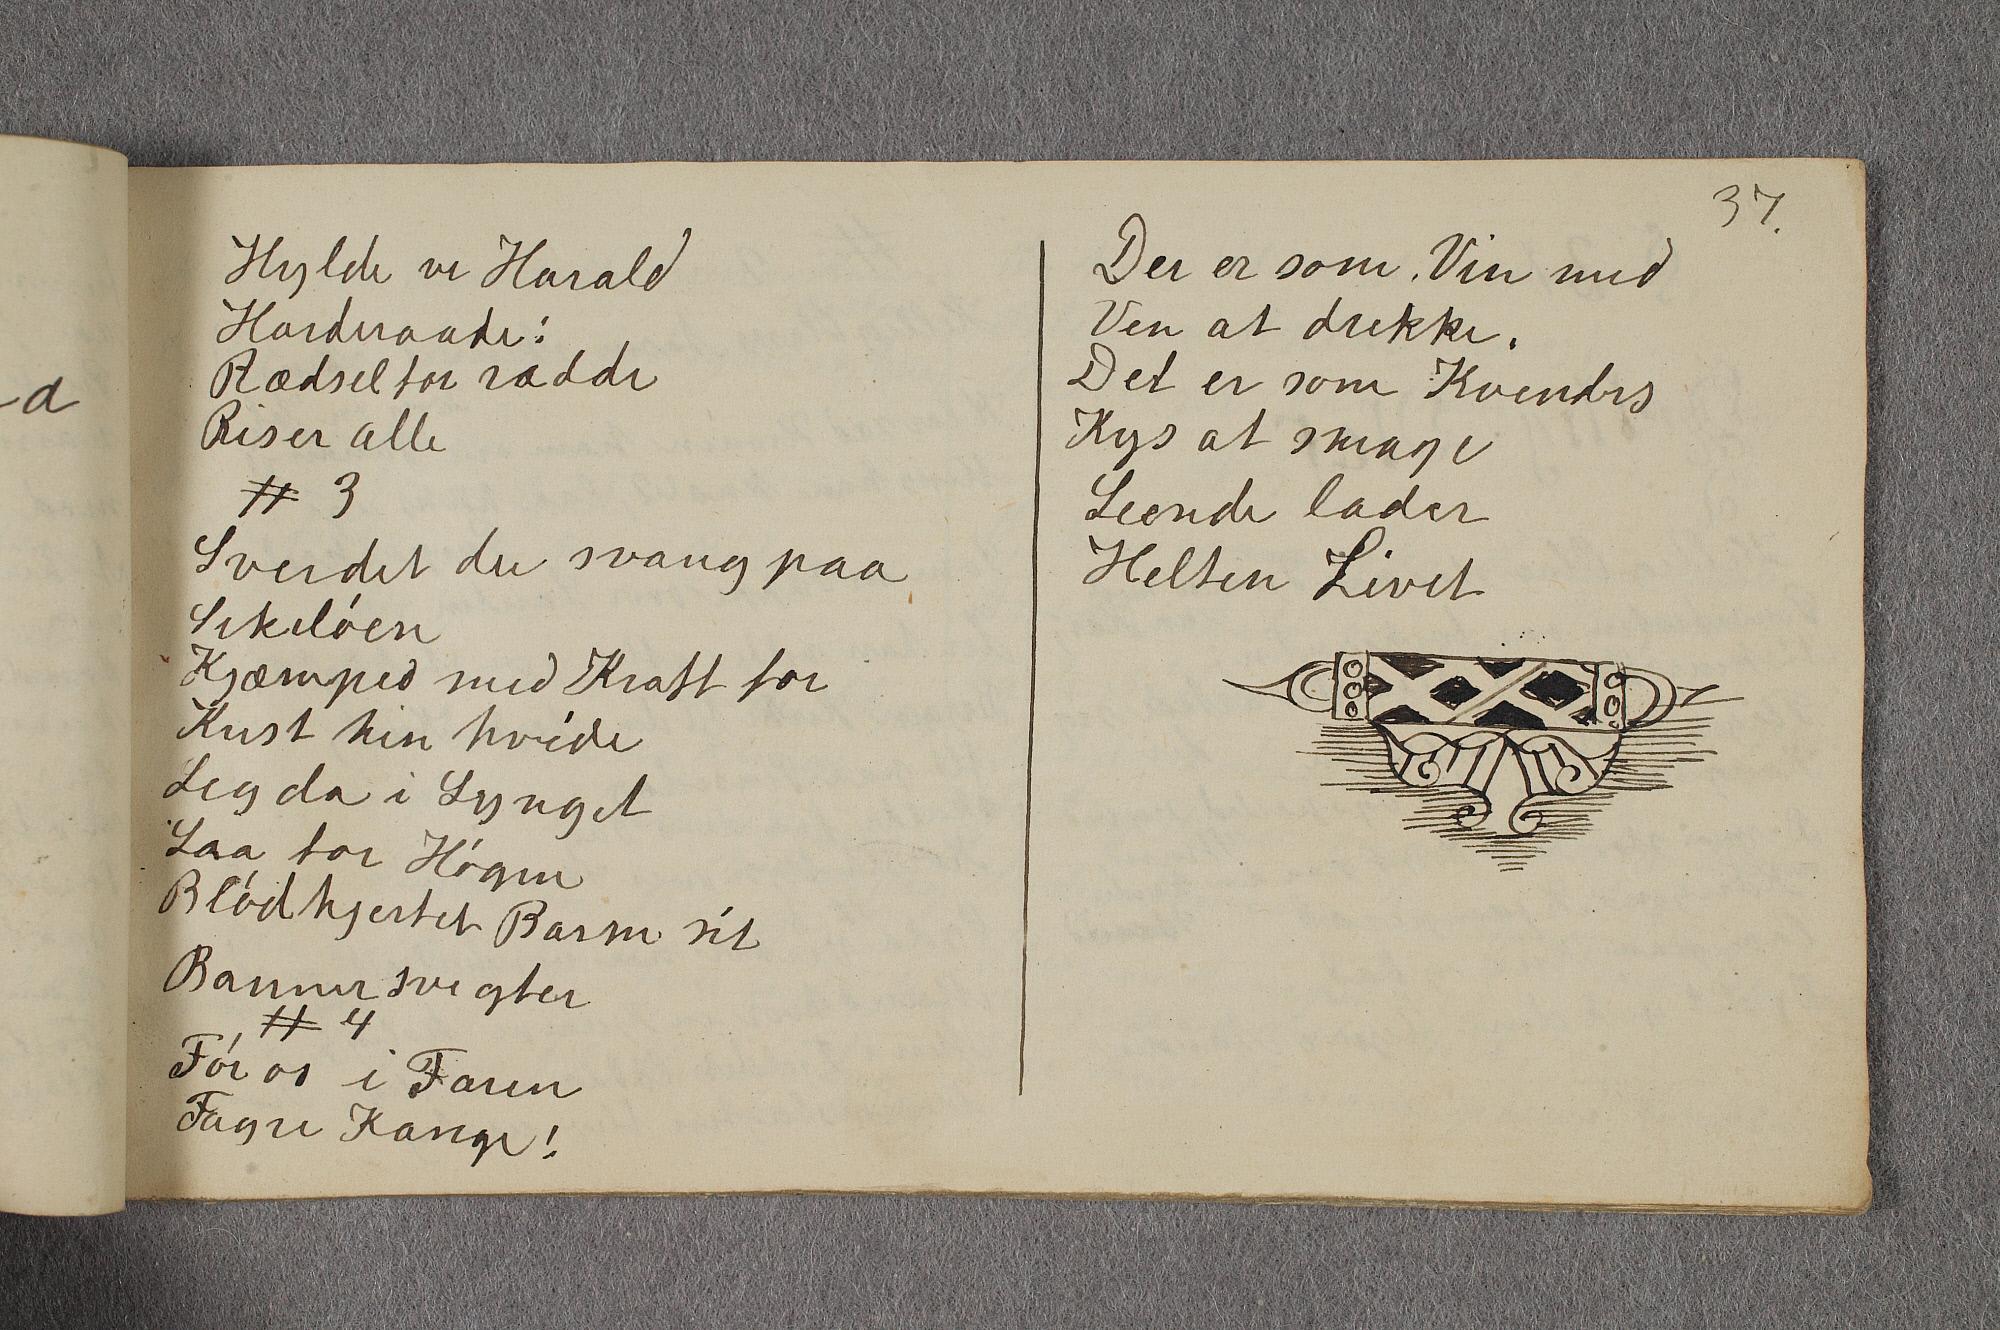 37.
Hylde vi Harald
Harderaade!
Rædsel for rædde
Riser alle
# 3
Sverdet du svang paa
Sikelóen
Kjæmped med Kraft for
Krist hin hvide
Leg da i Lynget
Laa for Hógen
Blódhjertet Barm sit
Banner svigter
# 4
Fór os i Faren
Fagre Kange!
Der er som Vin med
Ven at drikke.
Det er som Kvendes
Kys at smage
Leende lader
Helten Livet
a